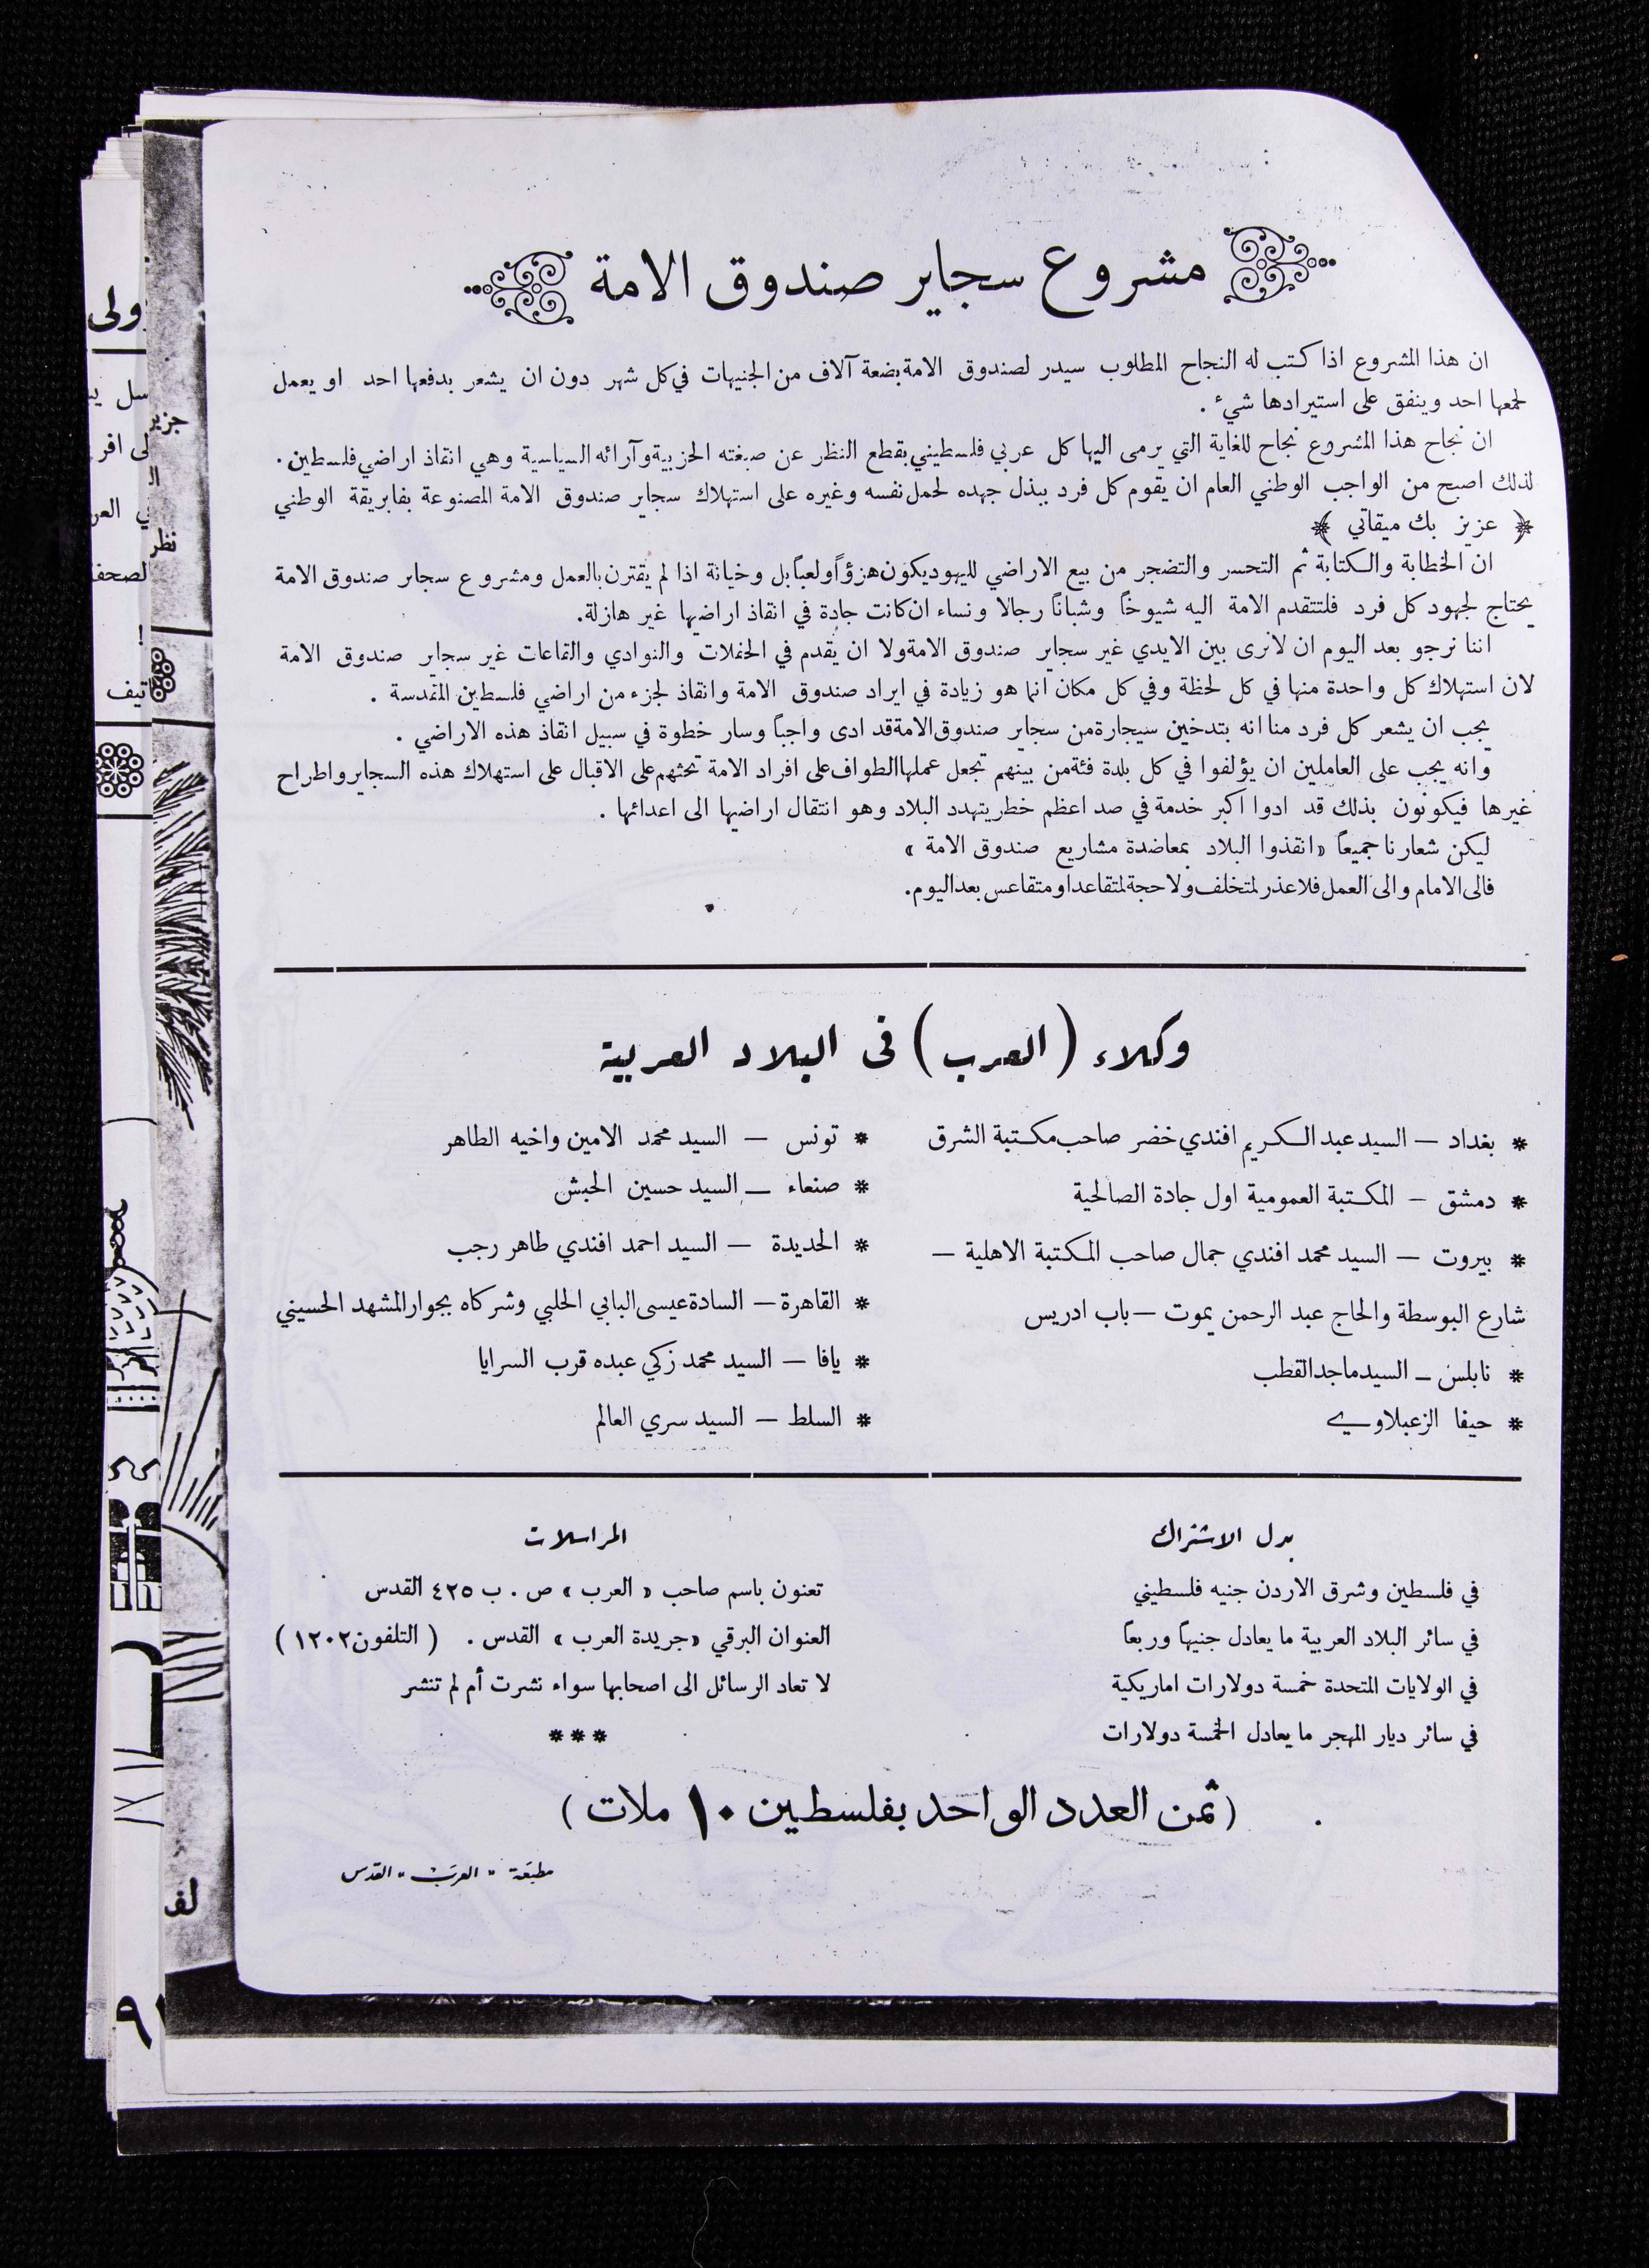 مشروع سجاير صندوق الامة
ان هذا المشروع اذا كتب له النجاح المطلوب سيدر لصندوق الامة بضعة آلاف من الجنيهات في كل شهر دون ان يشعر بدفعها احد او يعمل
لجمعها احد وينفق على استيرادها شيء .
ان نجاح هذا المشروع نجاح للغاية التي يرمى اليها كل عربي فلسطيني بقطع النظر عن صبغته الحزبية وآرائه السياسية وهي انقاذ اراضي فلسطين .
لذلك اصبح من الواجب الوطني العام ان يقوم كل فرد ببذل جهده لحمل نفسه وغيره على استهلاك سجاير صندوق الامة المصنوعة بفابريقة الوطني
﴿ عزيز بك ميقاتي ﴾
ان الخطابة والكتابة ثم التحسر والتضجر من بيع الاراضي لليهود يكون هزؤاً ولعباً بل وخيانة اذا لم يقترن بالعمل ومشروع سجاير صندوق الامة
يحتاج لجهود كل فرد فلتتقدم الامة اليه شيوخاً وشباناً رجالا ونساء ان كانت جادة في انقاذ اراضيها غير هازلة.
اننا نرجو بعد اليوم ان لا نرى بين الايدي غير سجاير صندوق الامة ولا ان يقدم في الحفلات والنوادي والقاعات غير سجاير صندوق الامة
لان استهلاك كل واحدة منها في كل لحظة وفي كل مكان انما هو زيادة في ايراد صندوق الامة وانقاذ لجزء من اراضي فلسطين المقدسة .
يجب ان يشعر كل فرد منا انه بتدخين سيجارة من سجاير صندوق الامة قد ادى واجباً وسار خطوة في سبيل انقاذ هذه الاراضي .
وانه يجب على العاملين ان يؤلفوا في كل بلدة فئة من بينهم تجعل عملها الطواف على افراد الامة تحثهم على الاقبال على استهلاك هذه السجاير واطراح
غيرها فيكونون بذلك قد ادوا اكبر خدمة في صد اعظم خطر يتهدد البلاد وهو انتقال اراضيها الى اعدائها .
ليكن شعارنا جميعاً «انقذوا البلاد بمعاضدة مشاريع صندوق الامة »
فالى الامام والى العمل فلا عذر لمتخلف ولا حجة لمتقاعد او متقاعس بعد اليوم.
وكلاء ( العرب ) فى البلاد العربية
* بغداد — السيد عبد الكريم افندي خضر صاحب مكتبة الشرق
* دمشق — المكتبة العمومية اول جادة الصالحية
* بيروت — السيد محمد افندي جمال صاحب المكتبة الاهلية —
شارع البوسطة والحاج عبد الرحمن يموت — باب ادريس
* نابلس — السيد ماجد القطب
* حيفا الزعبلاوي
* تونس — السيد محمد الامين واخيه الطاهر
* صنعاء — السيد حسين الحبش
* الحديدة — السيد احمد افندي طاهر رجب
* القاهرة — السادة عيسى البابي الحلبي وشركاه بجوار المشهد الحسيني
* يافا — السيد محمد زكي عبده قرب السرايا
* السلط — السيد سري العالم
بدل الاشتراك
في فلسطين وشرق الاردن جنيه فلسطيني
في سائر البلاد العربية ما يعادل جنيهاً وربعاً
في الولايات المتحدة خمسة دولارات اماريكية
في سائر ديار المهجر ما يعادل الخمسة دولارات
المراسلات
تعنون باسم صاحب « العرب » ص . ب ٤٢٥ القدس
العنوان البرقي «جريدة العرب» القدس . ( التلفون ١٢٠٢ )
لا تعاد الرسائل الى اصحابها سواء نشرت أم لم تنشر
***
( ثمن العدد الواحد بفلسطين ١٠ ملات )
مطبعة " العرب " القدس